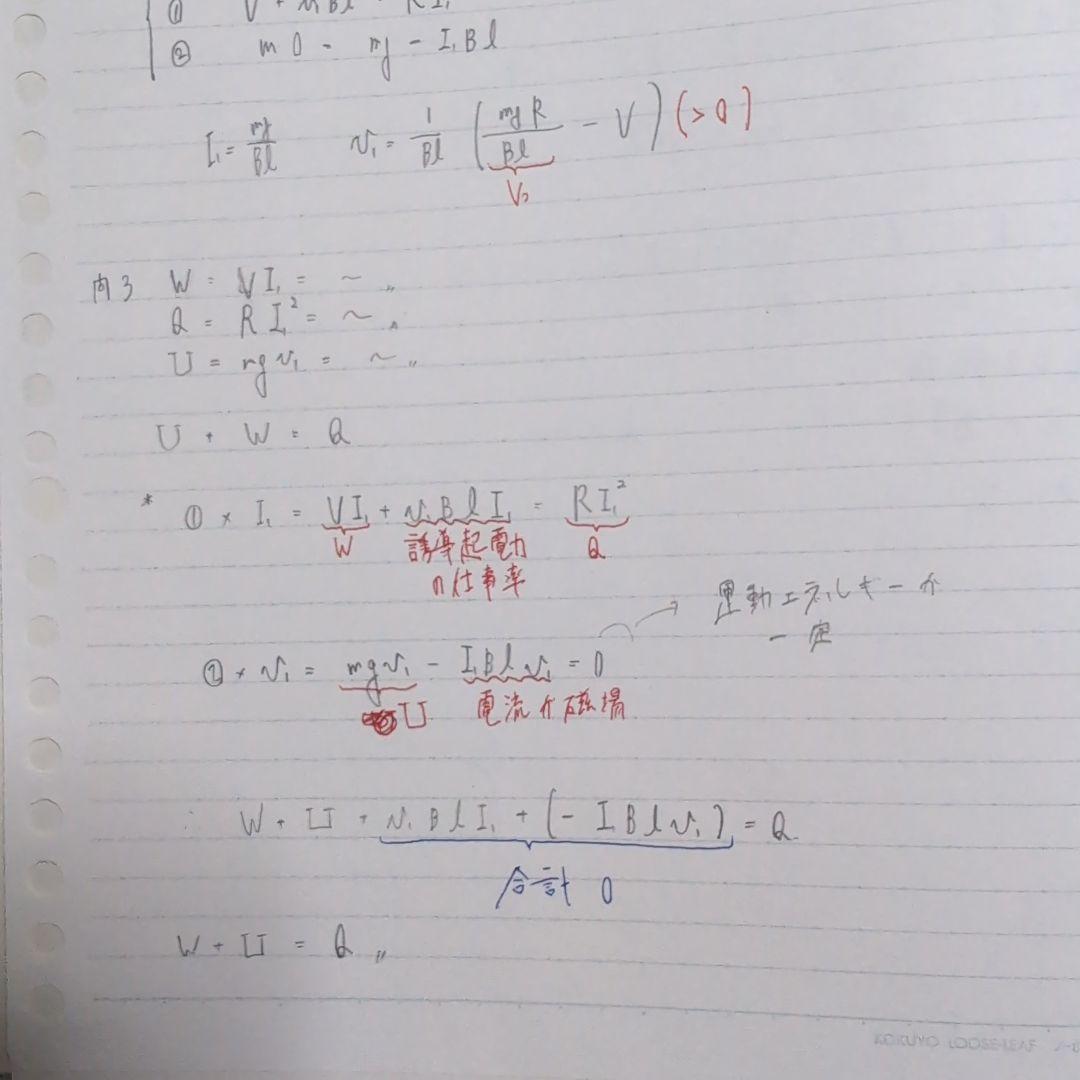 ① V + v₁Bl = RI₁
② m0 = mg - I₁Bl
I₁ = mg/Bl v₁ = 1/Bl (mgR/Bl - V) (>0)
V₀
問3 W = VI₁ = ~ 〃
Q = RI₁² = ~ 〃
U = mgv₁ = ~ 〃
U + W = Q
* ① × I₁ = VI₁ + v₁BlI₁ = RI₁²
W 誘導起電力 Q
の仕事率
運動エネルギーが
一定
② × v₁ = mgv₁ - I₁Blv₁ = 0
U 電流が磁場
∴ W + U + v₁BlI₁ + (- I₁Blv₁) = Q
合計 0
W + U = Q 〃
KOKUYO LOOSE-LEAF